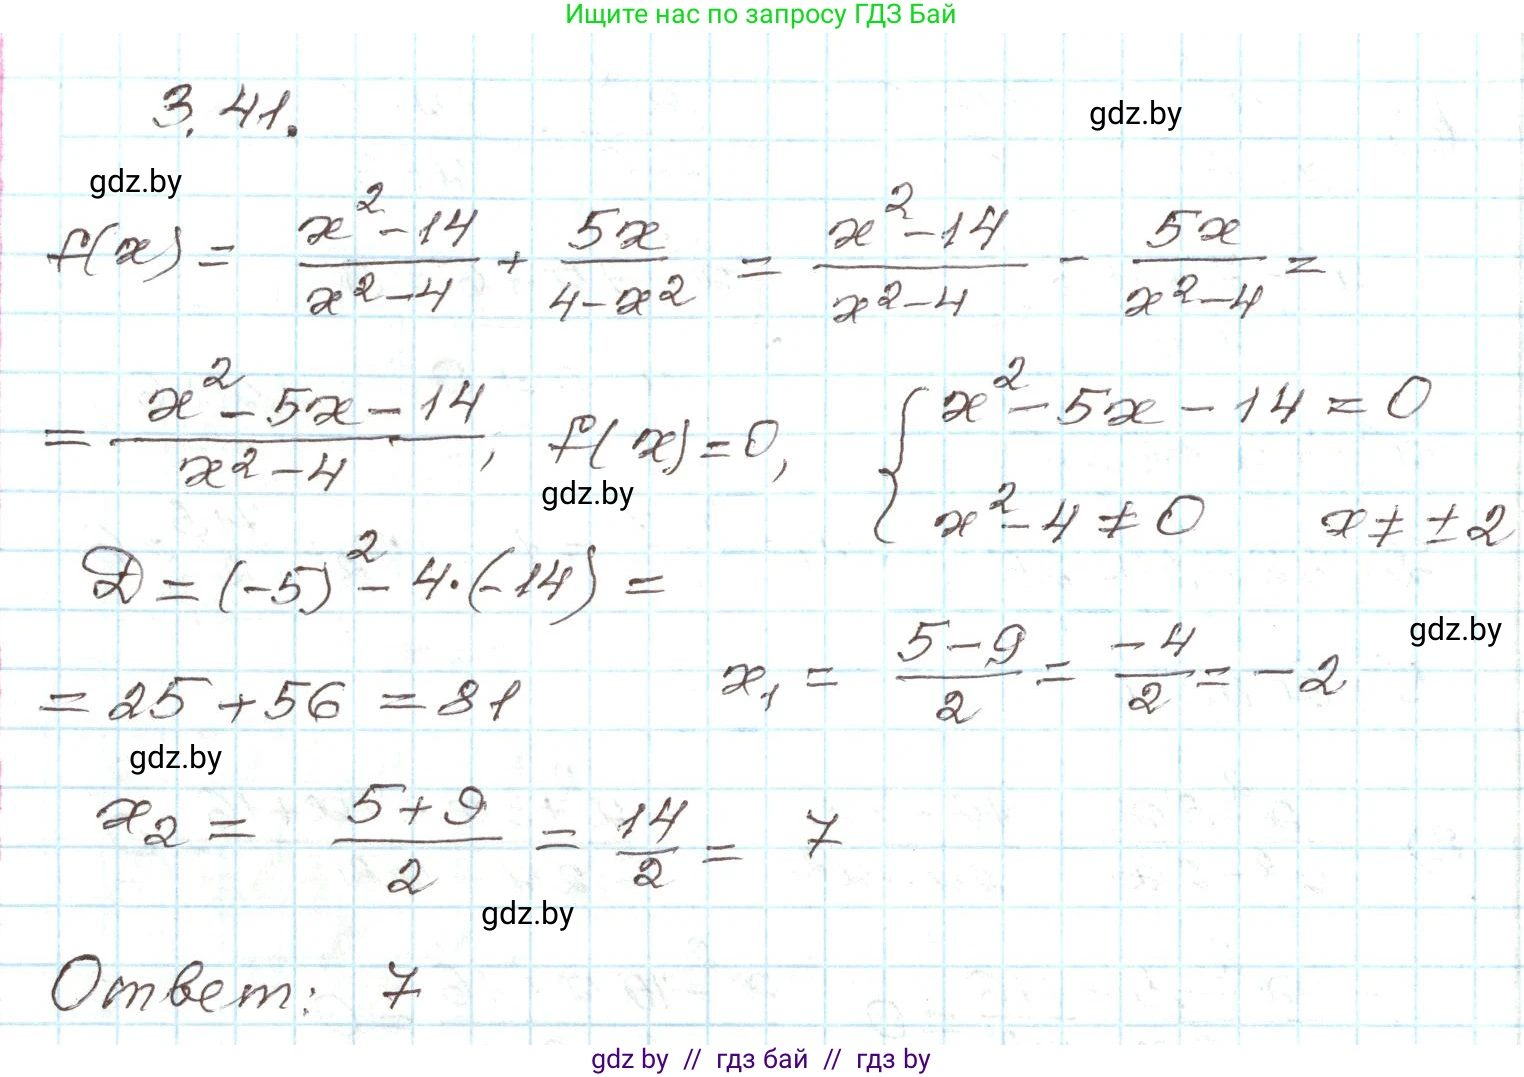 Ищите нас по запросу ГДЗ Бай
3.41.
gdz.by
gdz.by
f(x) = (x² - 14)/(x² - 4) + 5x/(4 - x²) = (x² - 14)/(x² - 4) - 5x/(x² - 4) =
= (x² - 5x - 14)/(x² - 4), f(x) = 0, { x² - 5x - 14 = 0
x² - 4 ≠ 0 x ≠ ±2
gdz.by
D = (-5)² - 4·(-14) =
gdz.by
= 25 + 56 = 81 x₁ = (5 - 9)/2 = -4/2 = -2
gdz.by
x₂ = (5 + 9)/2 = 14/2 = 7
gdz.by
Ответ: 7
gdz by // гдз бай // гдз by